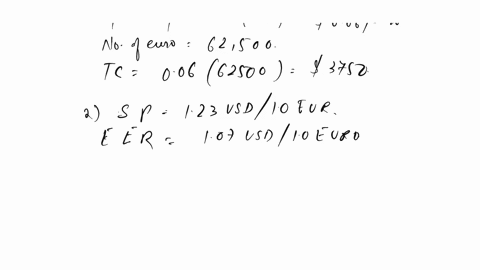 No. of euro = 62,500.
TC = 0.06 (62500) = $ 3750
2) S P = 1.23 USD/10 EUR.
E ER = 1.07 USD/10 EURO